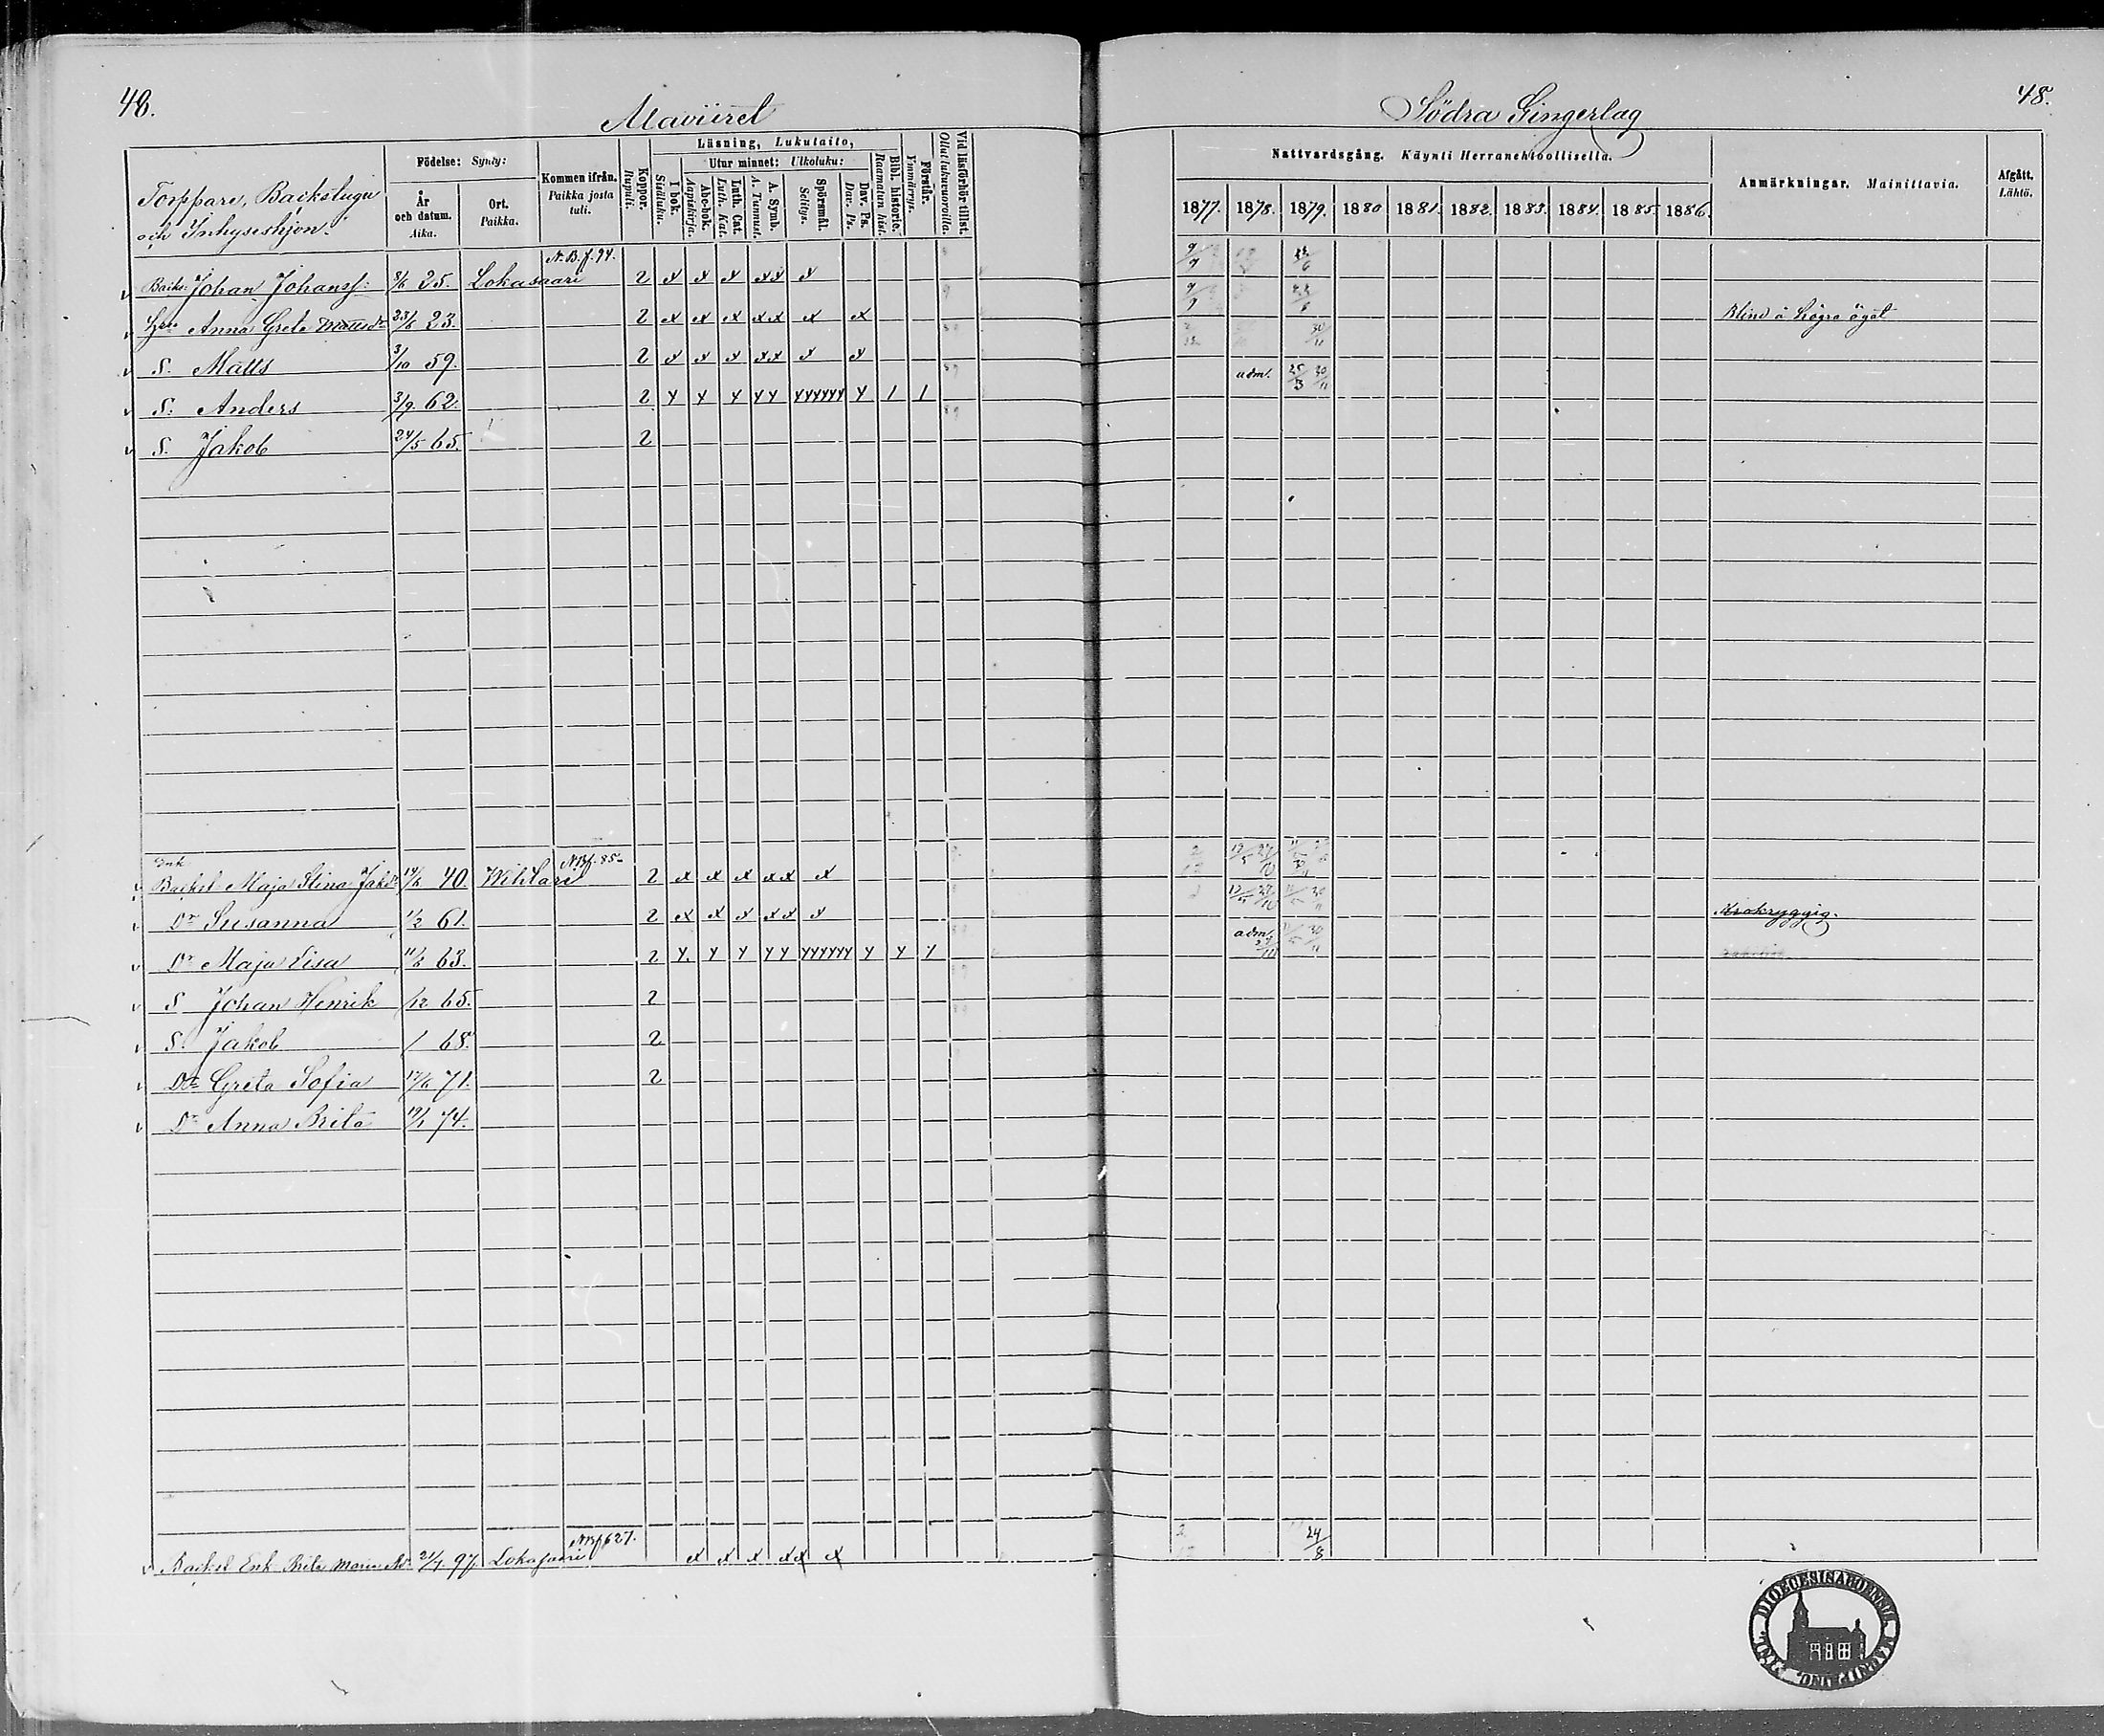 48.
Maviiret
Torppare, Backstugu
och Inhyseshjon.
Födelse: Synty:
År
och datum.
Aika.
Ort.
Paikka.
Kommen ifrån.
Paikka josta
tuli.
Koppor.
Rupuli.
Läsning, Lukutaito,
I bok.
Sisäluku.
Utur minnet: Ulkoluku:
Abc-bok.
Aapiskirja.
Luth. Cat.
Luth. Kat.
A. Symb.
A. Tunnust.
Spörsmål.
Selitys.
Dav. Ps.
Dav. Ps.
Bibl. historie.
Raamatun hist.
Förstår.
Ymmärrys.
Vid läsförhör tillst.
Ollut lukuvuoroilla.
N. B. f. 94.
Backs. Johan Johanss: 8/6 25. Lokasaari 2 x x x xx x
Hru Anna Greta Mattsdr 23/6 23. 2 x x x xx x x
S. Matts 3/10 59. 2 x x x xx x x
S. Anders 3/9 62. 2 y y y yy yyyyyy y 1 1
S. Jakob 24/5 65. 2
Enk NBf. 85
Backst Maja Stina Jakdr 14/6 40. Wihtari 2 x x x xx x
Dr Susanna 1/2 61. 2 x x x xx x
Dr Maja Lisa 11/6 63. 2 y y y yy yyyyyy y y y
S Johan Henrik /12 65. 2
S. Jakob / 68. 2
Dr Greta Sofia 17/6 71. 2
Dr Anna Brita 19/1 74.
NBf 627.
Backst Enk Brita Maria 21/7 97. Lokasaari x x x xx x
48.
Södra Gingerlag
Nattvardsgång. Käynti Herranehtoollisella.
1877. 1878. 1879. 1880 1881. 1882. 1883. 1884. 1885. 1886.
Anmärkningar. Mainittavia.
Afgått.
Lähtö.
9/7
9/7
Blind å högra ögat
30/11
adm. 25/3 30/11
Krokryggig.
adm.
24/8
DIOECESIS ABOENSIS